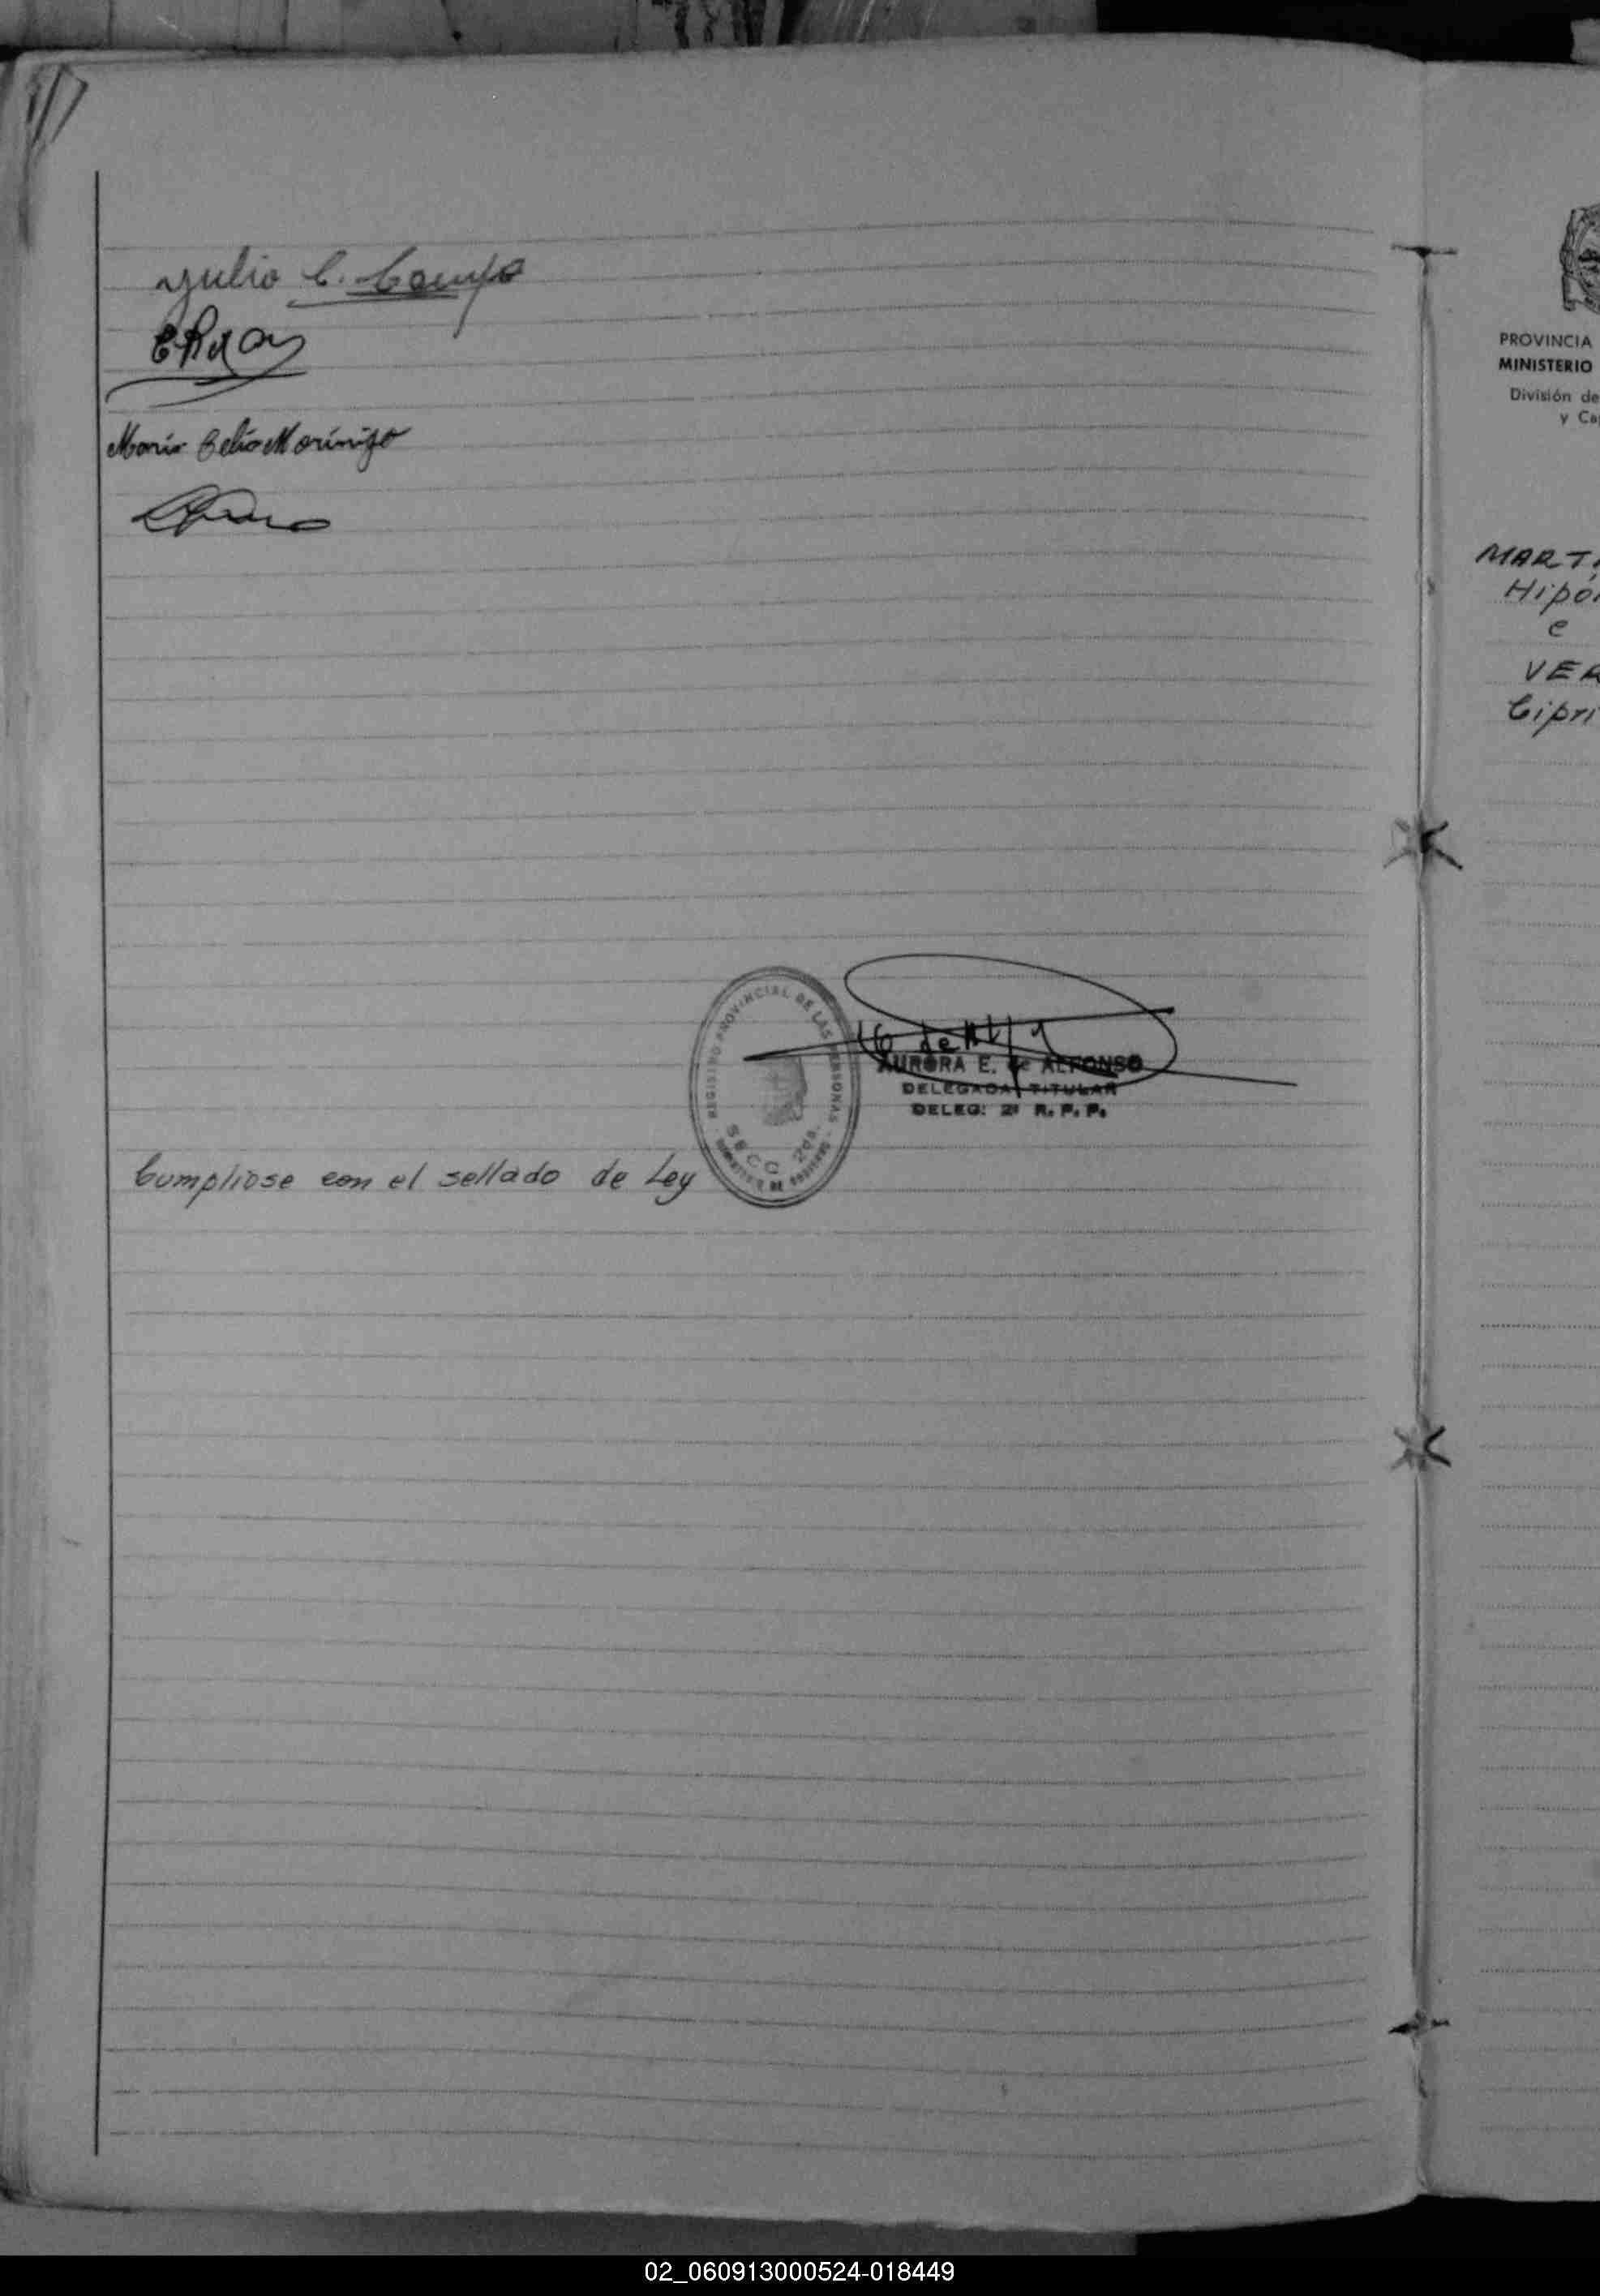 Julio C. Campo
María Celia Morínigo
REGISTRO PROVINCIAL DE LAS PERSONAS
SECC 2da.
AURORA E. de ALFONSO
DELEGADA TITULAR
DELEG: 2ª R. P. P.
Cumpliose con el sellado de Ley
PROVINCIA
MINISTERIO
División de
y Ca
MART
Hipó
e
VER
Cipri
02_060913000524-018449